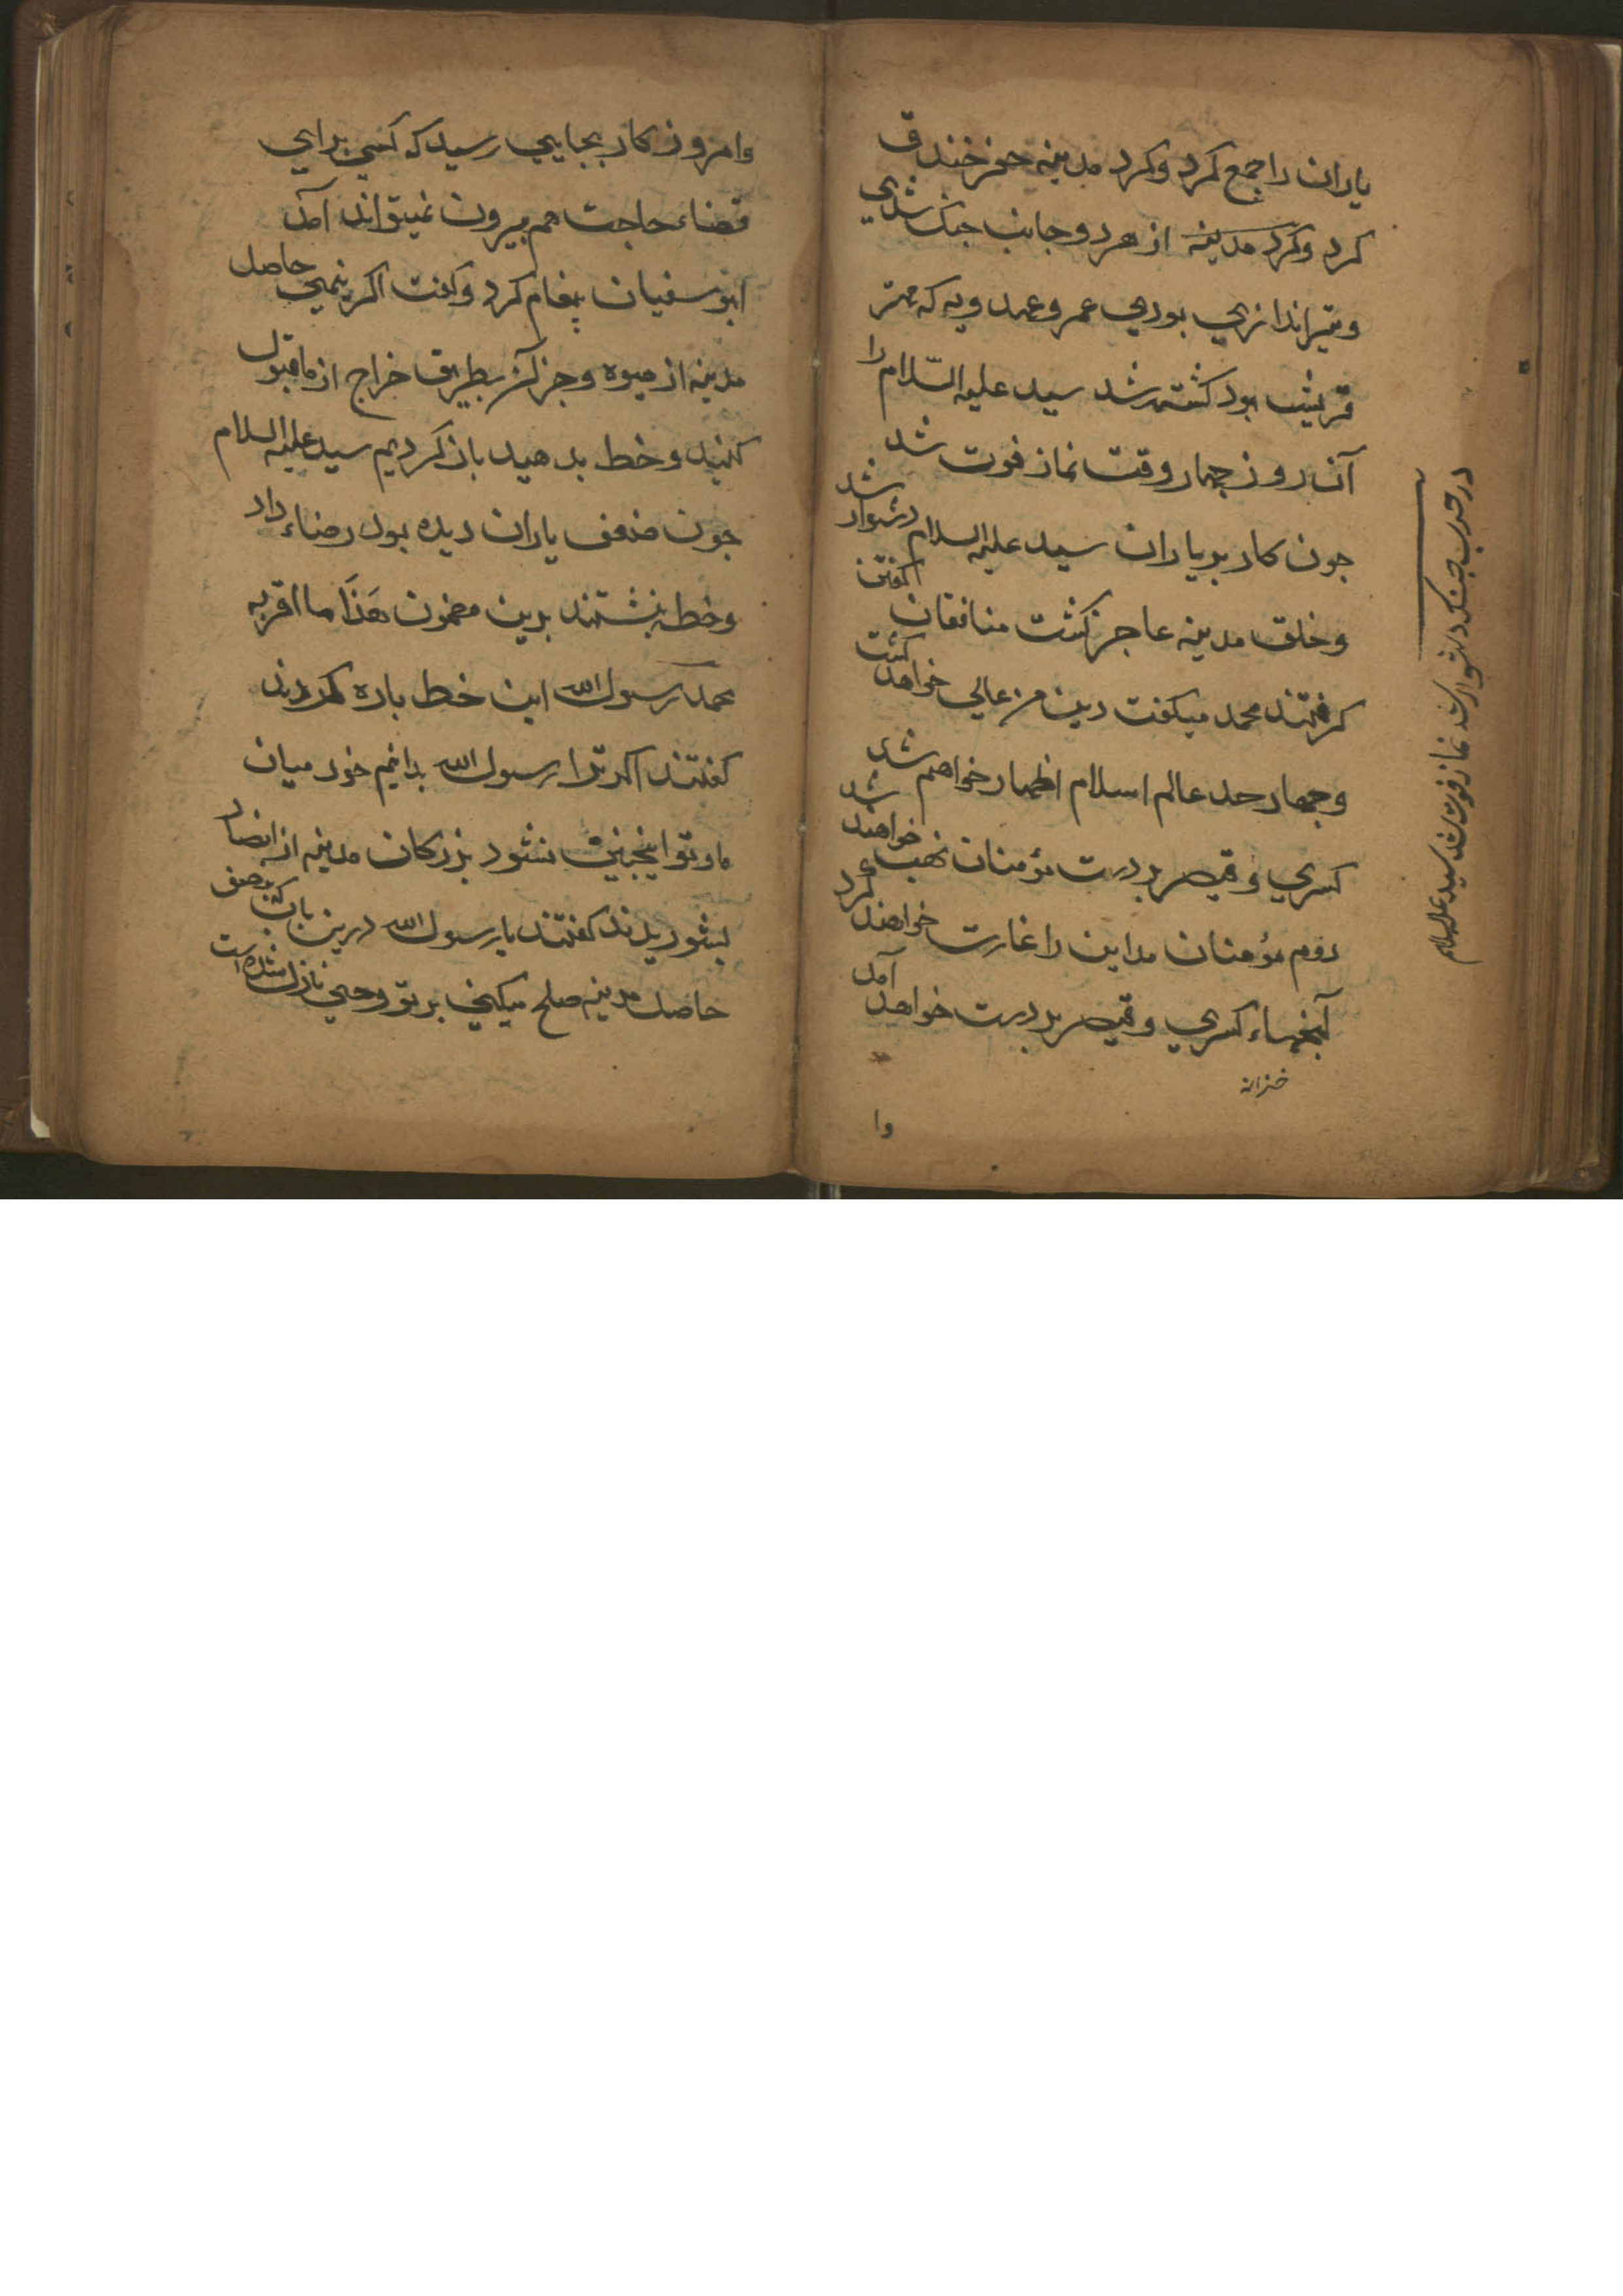 یاران را جمع کرد و کرد مدینه حفر خندق
کرد و کرد مدینه از هر دو جانب جنک شدی
و تیراندازی بودی عمرو عبد ویه که مهتر
قریش بود کشته شد سید علیه السّلام را
آن روز چهار وقت نماز فوت شد
جون کار بر یاران سید علیه السلام دشوار شد
و خلق مدینه عاجز کشت منافقان کفتن
کرفتند محمد میکفت دین من عالی خواهد کشت
و جهار حد عالم اسلام اظهار خواهم شد
کسری و قیصر بدست مؤمنان نهب خواهند شد
روم مؤمنان مداین را غارت خواهند کرد
کنجهاء کسری و قیصر بدست خواهد آمد
خزانه
وا
در حرب جنک دشوار شد نماز فوت شد سید علیه السلام
وامروز کار بجایی رسید که کسی برای
قضاء حاجت هم بیرون نمیتواند آمد
ابو سفیان پیغام کرد و کفت اکر نیمی حاصل
مدینه از میوه و جز آن بطریق خراج از ما قبول
کنید و خط بدهید باز کردیم سید علیه السلام
جون ضعف یاران دیده بود رضاء داد
و خط نبشتند بدین مضمون هَذَا ما اقر به
محمد رسول الله این خط باره کردند
کفتند اکر ترا رسول الله دانیم خود میان
ما و تو اینچنین نشود بزرکان مدینه از انصار
بشوریدند کفتند یا رسول الله درین باب که نصف
حاصل مدینه صلح میکنی بر تو وحی نازل شده است